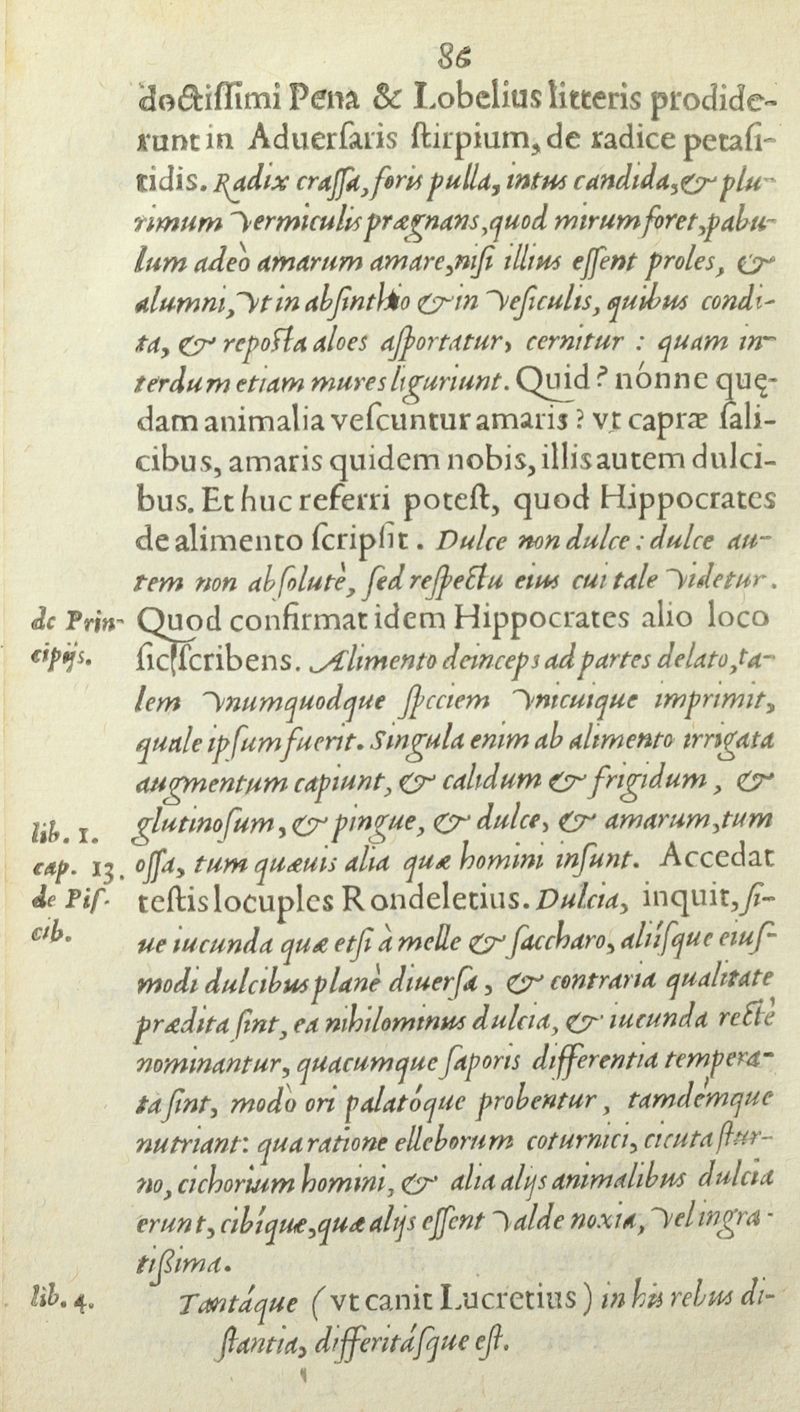 86
doctiſſimi Pena & Lobelius litteris prodide-
runt in Aduerſariis ſtirpium, de radice petaſi-
tidis. Radix craſſa, foris pulla, intus candida, & plu-
rimum vermiculis prægnans, quod mirum foret, pabu-
lum adeò amarum amare, niſi illius eſſent proles, &
alumni, vt in abſinthio & in veſiculis, quibus condi-
ta, & repoſta aloes aſportatur, cernitur : quam in-
terdum etiam mures liguriunt. Quid ? nónne quę-
dam animalia veſcuntur amaris ? vt capræ ſali-
cibus, amaris quidem nobis, illis autem dulci-
bus. Et huc referri poteſt, quod Hippocrates
de alimento ſcripſit. Dulce non dulce : dulce au-
tem non abſolutè, ſed reſpectu eius cui tale videtur.
de Prin-
cipijs.
Quod confirmat idem Hippocrates alio loco
ſic ſcribens. Alimento deinceps ad partes delato, ta-
lem vnumquodque ſpeciem vnicuique imprimit,
quale ipſum fuerit. Singula enim ab alimento irrigata
augmentum capiunt, & calidum & frigidum, &
glutinoſum, & pingue, & dulce, & amarum, tum
lib. 1.
cap. 13.
de Piſ-
cib.
oſſa, tum quæuis alia quæ homini inſunt. Accedat
teſtis locuples Rondeletius. Dulcia, inquit, ſi-
ue iucunda quæ etſi à melle & ſaccharo, aliíſque eiuſ-
modi dulcibus planè diuerſa, & contraria qualitate
prædita ſint, ea nihilominus dulcia, & iucunda rectè
nominantur, quacumque ſaporis differentia tempera-
ta ſint, modò ori palatóque probentur, tamdémque
nutriant: qua ratione elleborum coturnici, cicuta ſtur-
no, cichorium homini, & alia alijs animalibus dulcia
erunt, cibíque, quæ alijs eſſent valde noxia, vel ingra-
tiſſima.
lib. 4.
Tantáque (vt canit Lucretius) in his rebus di-
ſtantia, differitáſque eſt.